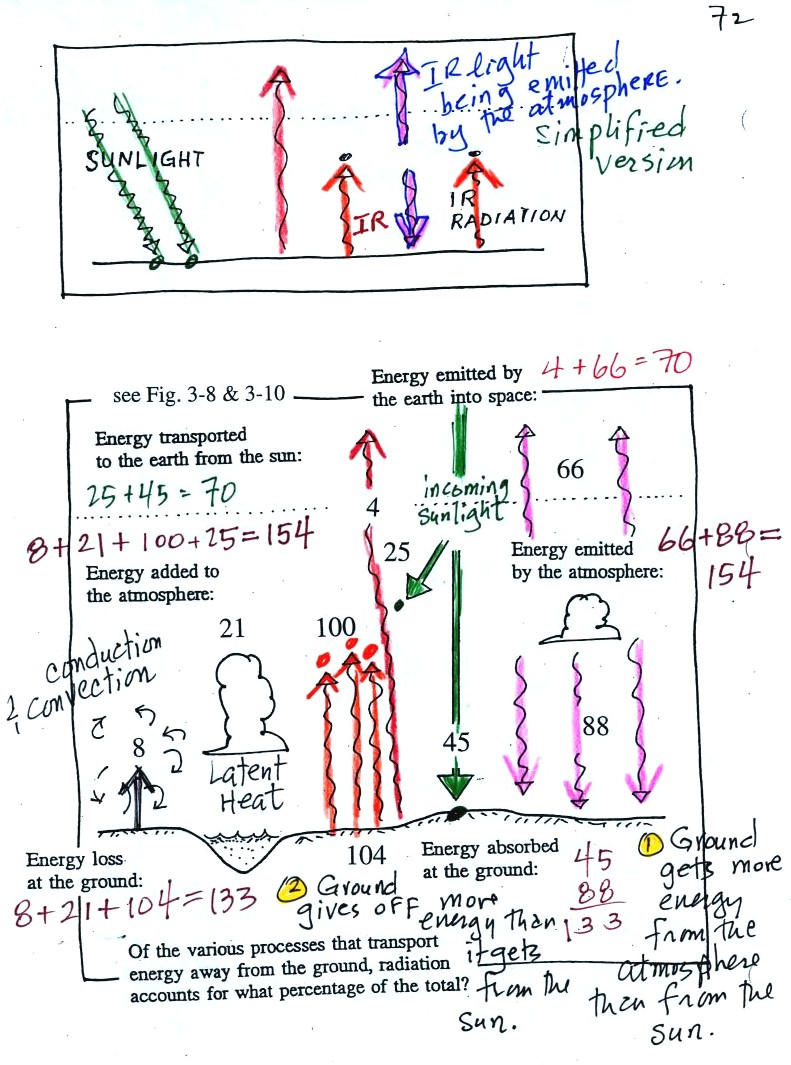 72
IR light
being emitted
by the atmosphere.
Simplified
version
SUNLIGHT
IR
IR
RADIATION
Energy emitted by
the earth into space:
4 + 66 = 70
see Fig. 3-8 & 3-10
Energy transported
to the earth from the sun:
25 + 45 = 70
incoming
sunlight
66
4
8 + 21 + 100 + 25 = 154
25
Energy added to
the atmosphere:
Energy emitted
by the atmosphere:
66 + 88 =
154
21
100
conduction
convection
8
Latent
Heat
45
88
104
Energy loss
at the ground:
8 + 21 + 104 = 133
Energy absorbed
at the ground:
45
88
133
① Ground
gets more
energy
from the
atmosphere
than from the
sun.
② Ground
gives off more
energy than
it gets
from the
sun.
Of the various processes that transport
energy away from the ground, radiation
accounts for what percentage of the total?